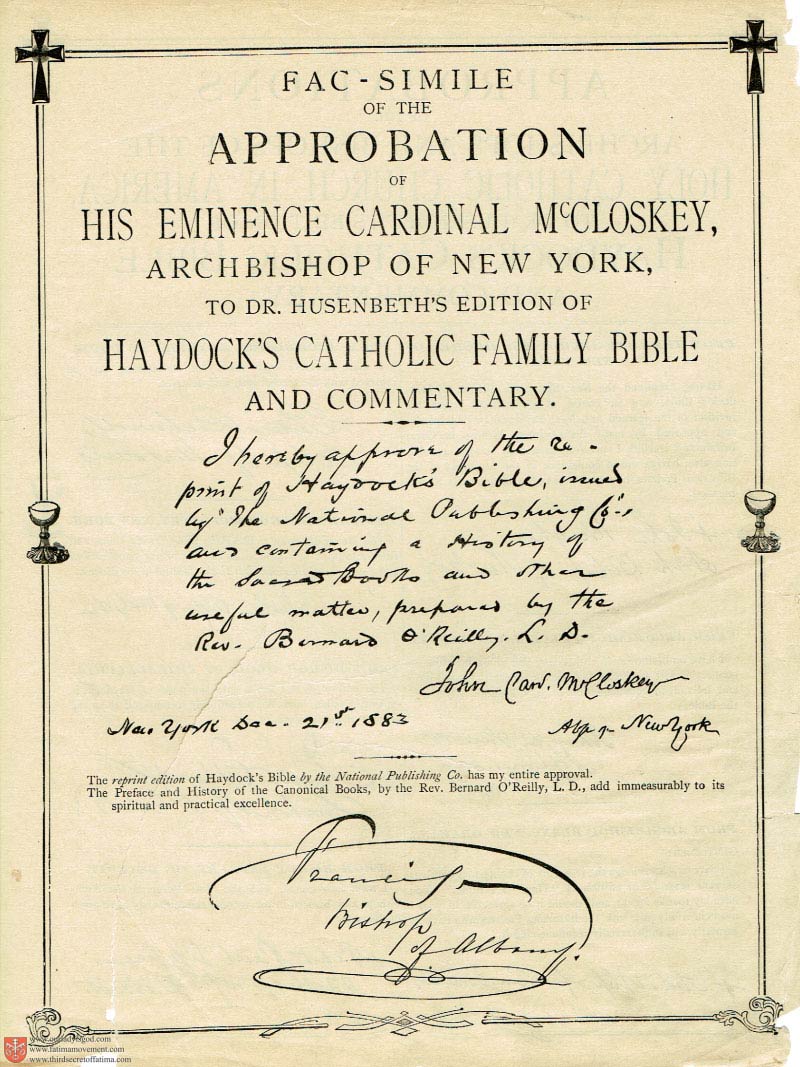 FAC-SIMILE
OF THE
APPROBATION
OF
HIS EMINENCE CARDINAL McCLOSKEY,
ARCHBISHOP OF NEW YORK,
TO DR. HUSENBETH'S EDITION OF
HAYDOCK'S CATHOLIC FAMILY BIBLE
AND COMMENTARY.
I hereby approve of the re-
print of Haydock's Bible, issued
by The National Publishing Co.,
and containing a History of
the Sacred Books and other
useful matter, prepared by the
Rev. Bernard O'Reilly. L. D.
John Card. McCloskey
New York Dec. 21st 1883
Abp of New York
The reprint edition of Haydock's Bible by the National Publishing Co. has my entire approval.
The Preface and History of the Canonical Books, by the Rev. Bernard O'Reilly, L. D., add immeasurably to its
spiritual and practical excellence.
Francis
Bishop
of Albany.
www.fatimamovement.com
www.thirdsecretoffatima.com